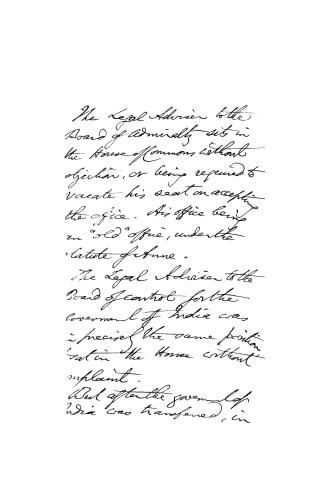 The Legal Adviser to the
Board of Admiralty sits in
the House of Commons without
objection, or being required to
vacate his seat on accepting
the office. His office being
an "old" office, under the
Statute of Anne.
The Legal Adviser to the
Board of control for the
Government of India was
in precisely the same position
sat in the House without
complaint.
But after the governmt of
India was transferred, in